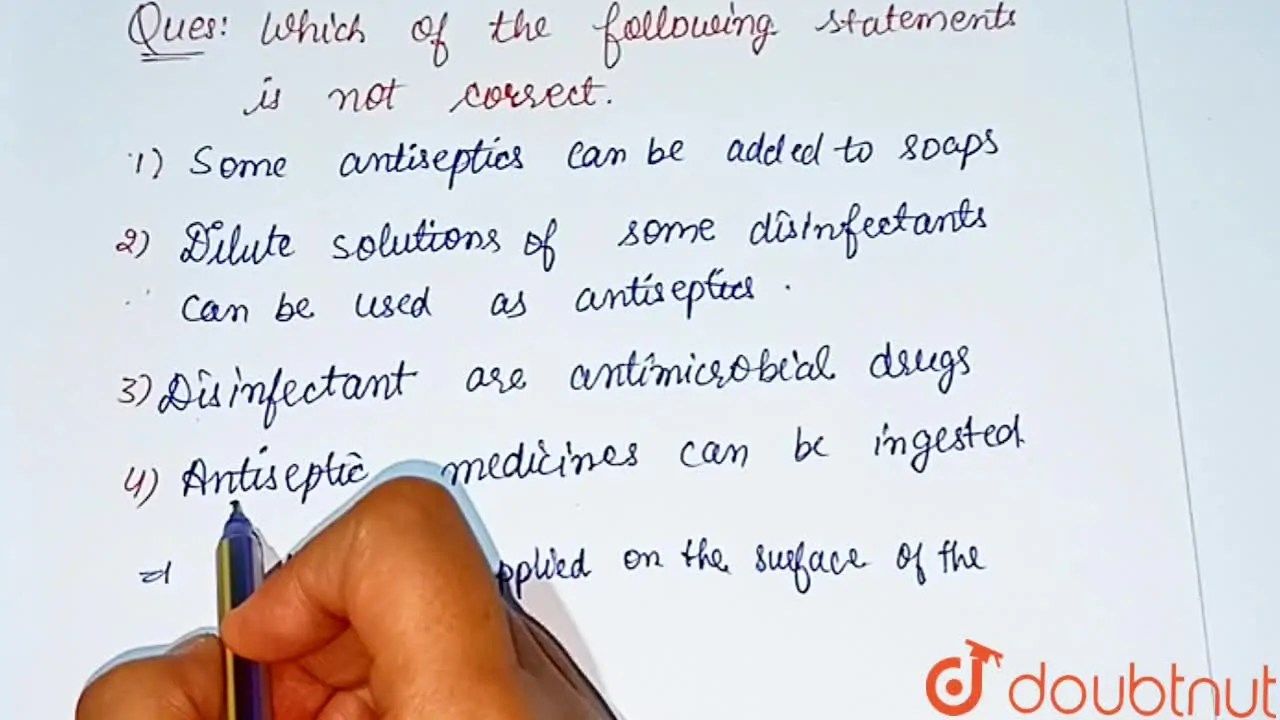 Ques: Which of the following statements
is not correct.
1) Some antiseptics can be added to soaps
2) Dilute solutions of some disinfectants
can be used as antiseptics.
3) Disinfectant are antimicrobial drugs
4) Antiseptic medicines can be ingested.
⇒ pplied on the surface of the
doubtnut